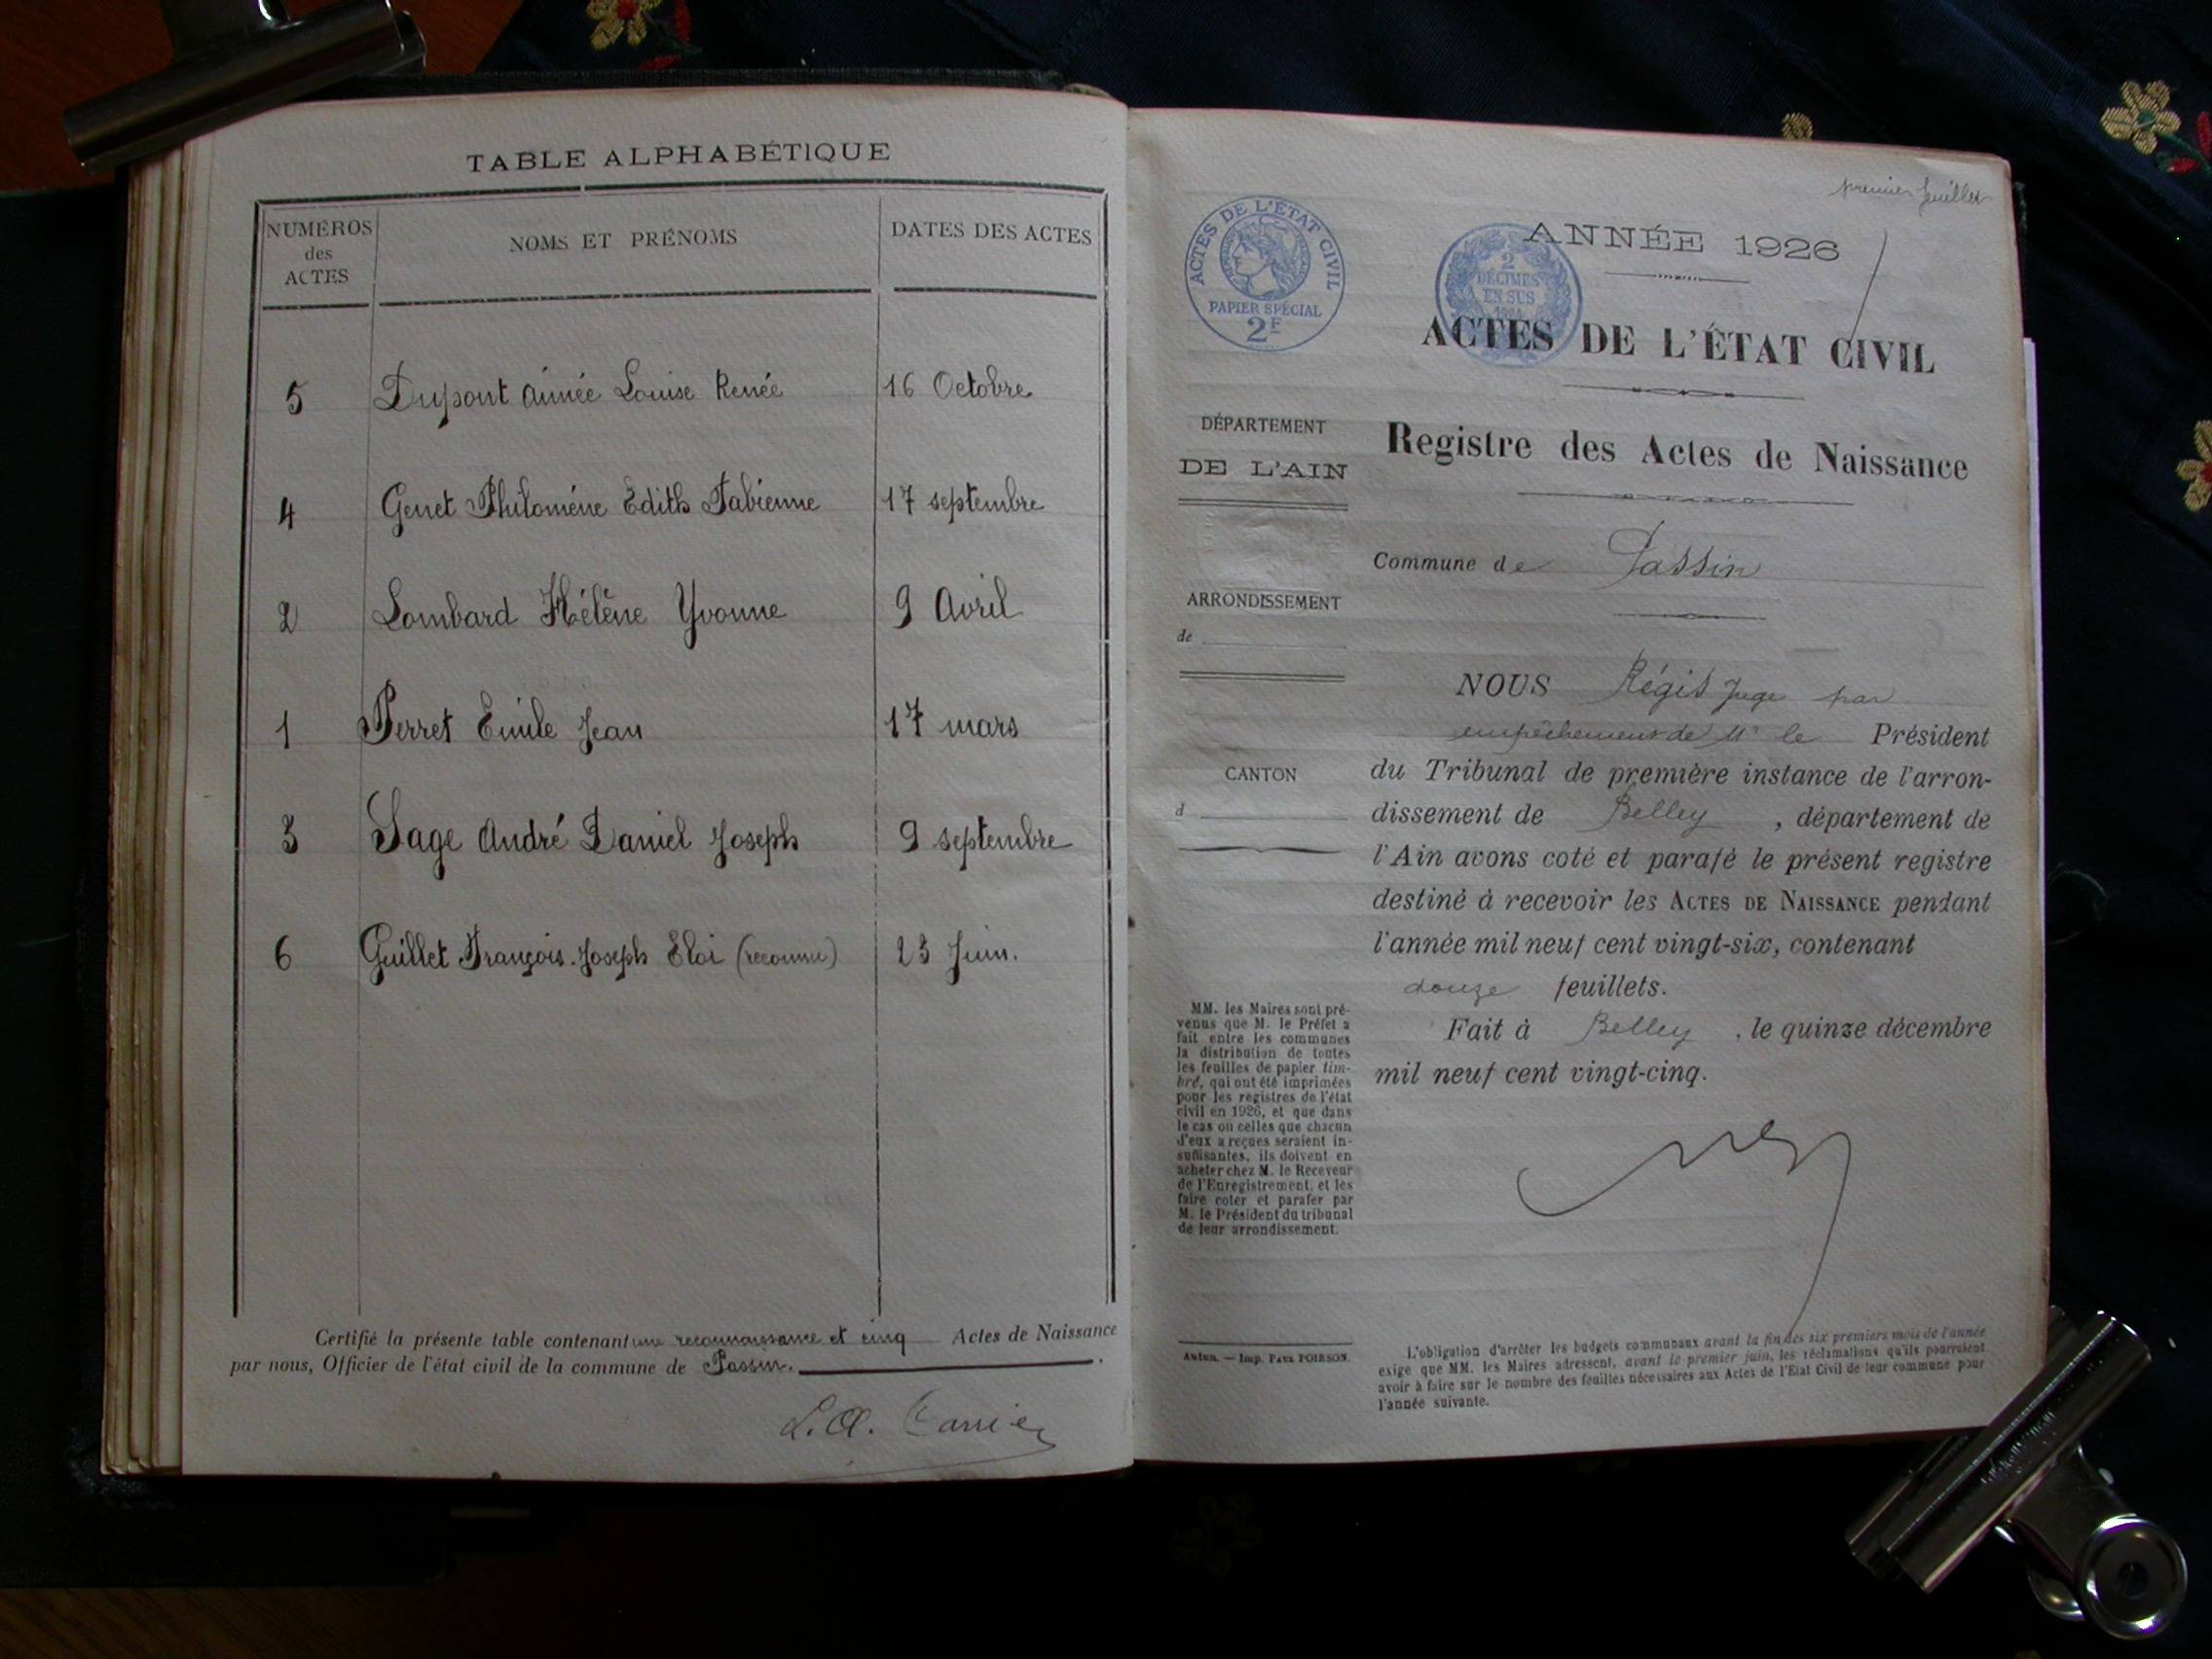 TABLE ALPHABÉTIQUE
NUMÉROS des ACTES
NOMS ET PRÉNOMS
DATES DES ACTES
5 Dupont Aimée Louise Renée 16 Octobre
4 Genet Philomène Edith Fabienne 17 septembre
2 Lombard Hélène Yvonne 9 Avril
1 Perret Emile Jean 17 mars
3 Sage André Daniel Joseph 9 septembre
6 Guillet François Joseph Eloi (reconnu) 23 Juin.
Certifié la présente table contenant une reconnaissance et cinq Actes de Naissance
par nous, Officier de l'état civil de la commune de Passin.
L. A.
premier feuillet
ACTES DE L'ÉTAT CIVIL
PAPIER SPÉCIAL
2F
2
DÉCIMES
EN SUS
ANNÉE 1926
ACTES DE L'ÉTAT CIVIL
Registre des Actes de Naissance
DÉPARTEMENT
DE L'AIN
Commune de Passin
ARRONDISSEMENT
de
CANTON
d
NOUS Régis Juge par
empêchement de Mr le Président
du Tribunal de première instance de l'arron-
dissement de Belley, département de
l'Ain avons coté et parafé le présent registre
destiné à recevoir les ACTES DE NAISSANCE pendant
l'année mil neuf cent vingt-six, contenant
douze feuillets.
Fait à Belley, le quinze décembre
mil neuf cent vingt-cinq.
MM. les Maires sont pré-
venus que M. le Préfet a
fait entre les communes
la distribution de toutes
les feuilles de papier tim-
bré, qui ont été imprimées
pour les registres de l'état
civil en 1926, et que dans
le cas où celles que chacun
d'eux a reçues seraient in-
suffisantes, ils doivent en
acheter chez M. le Receveur
de l'Enregistrement, et les
faire coter et parafer par
M. le Président du tribunal
de leur arrondissement.
Autun. — Imp. PAUL POIRSON.
L'obligation d'arrêter les budgets communaux avant la fin des six premiers mois de l'année
exige que MM. les Maires adressent, avant le premier juin, les réclamations qu'ils pourraient
avoir à faire sur le nombre des feuilles nécessaires aux Actes de l'État Civil de leur commune pour
l'année suivante.